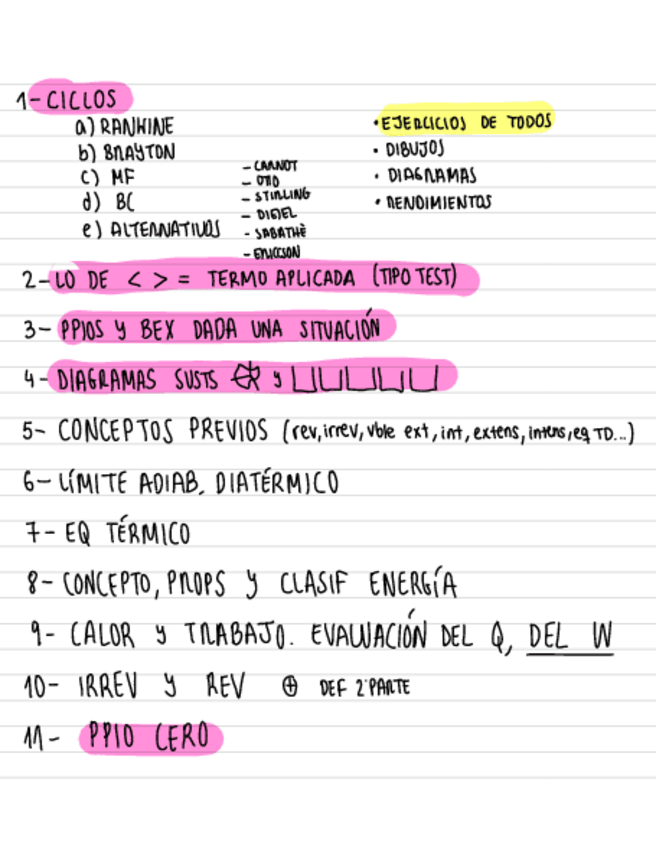 1- CICLOS
a) RANKINE
b) BRAYTON
c) MF
d) BC
e) ALTERNATIVOS
- CARNOT
- OTTO
- STIRLING
- DIESEL
- SABATHÈ
- ERICCSON
• EJERCICIOS DE TODOS
• DIBUJOS
• DIAGRAMAS
• RENDIMIENTOS
2- LO DE < > = TERMO APLICADA (TIPO TEST)
3- PPIOS Y BEX DADA UNA SITUACIÓN
4- DIAGRAMAS SUSTS y
5- CONCEPTOS PREVIOS (rev, irrev, vble ext, int, extens, intens, eq TD...)
6- LÍMITE ADIAB. DIATÉRMICO
7- EQ TÉRMICO
8- CONCEPTO, PROPS Y CLASIF ENERGÍA
9- CALOR y TRABAJO. EVALUACIÓN DEL Q, DEL W
10- IRREV Y REV ⊕ DEF 2ª PARTE
11- PPIO CERO